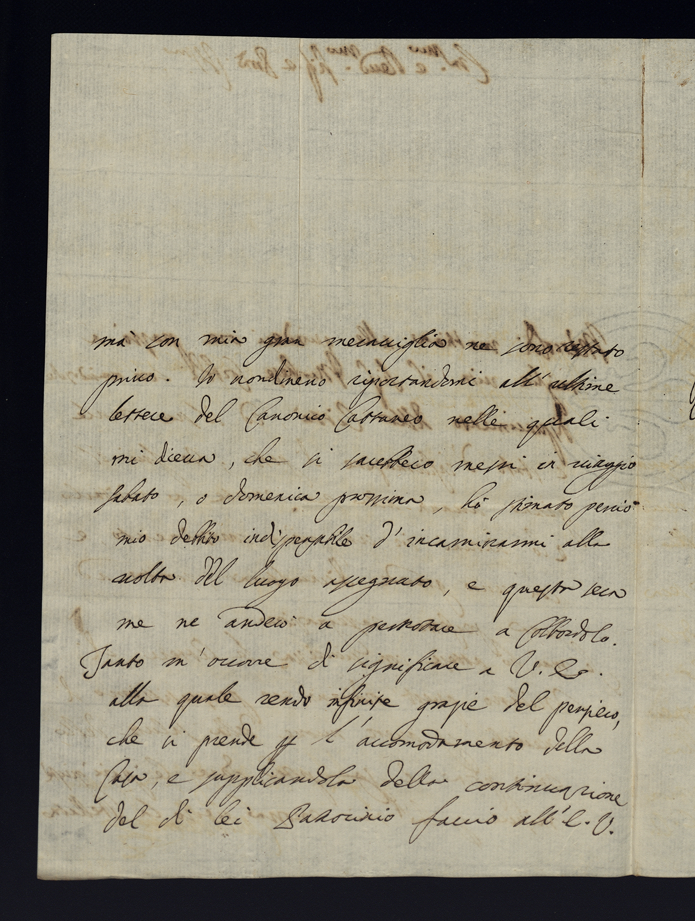 mà con mia gran meraviglia ne sono restato
privo. Io nondimeno riportandomi all'ultime
lettere del Canonico Cattaneo nelle quali
mi diceva, che si sarebbero messi in viaggio
sabato, o domenica prossima, hò stimato perciò
mio debito indispensabile d'incaminarmi alla
volta del luogo assegnato, e questa sera
me ne anderò a pernottare a Colbordolo.
Tanto m'occorre di significare a V. E.
alla quale rendo infinite grazie del pensiero,
che si prende p l'accomodamento della
Casa, e supplicandola della continuazione
del di lei Patrocinio faccio all'E. V.